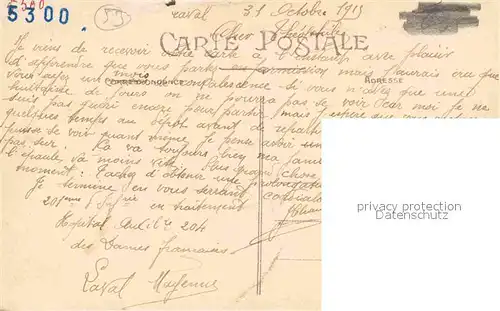 5300
5300
59
Laval 31 Octobre 1915
Cher Théophile
CARTE POSTALE
CORRESPONDANCE
ADRESSE
Je viens de recevoir votre carte à l'instant avec plaisir
d'apprendre que vous partez en permission mais j'aurais cru que
vous ayez un mois convalescence si vous n'avez que une
huitaine de jours on ne pourra pas se voir car moi je ne
suis pas guéri encore pour partir mais j'espère que vous
quelques temps au dépôt avant de
puisse se voir quand même je pense avoir un
pas sur. Ca va toujours bien ma jambe
l'épaule va moins vite. Plus grand chose
moment. Tachez d'obtenir une prolongation
Je termine en vous serrant
en traitement
Hopital Auxil^re 204
des Dames françaises
Laval Mayenne
privacy protection
Datenschutz